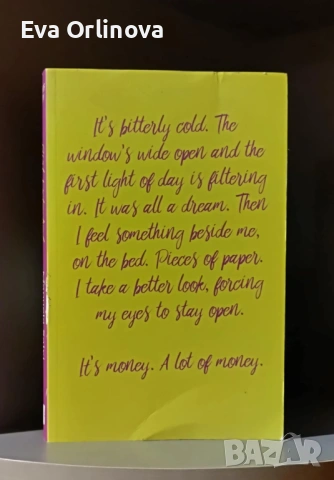 Eva Orlinova
It's bitterly cold. The
window's wide open and the
first light of day is filtering
in. It was all a dream. Then
I feel something beside me,
on the bed. Pieces of paper.
I take a better look, forcing
my eyes to stay open.
It's money. A lot of money.
BAZAR